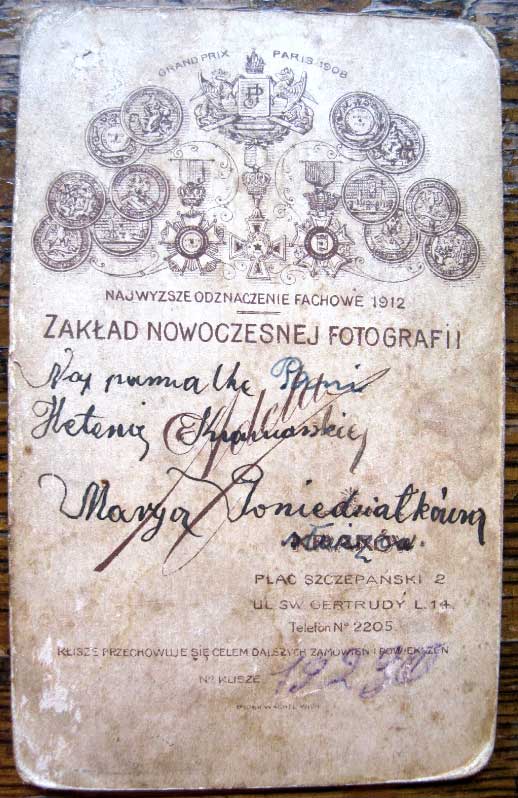 GRAND PRIX PARIS 1908
NAJWYZSZE ODZNACZENIE FACHOWE 1912
ZAKŁAD NOWOCZESNEJ FOTOGRAFII
Na pamiatkę Pani
Helenie
Marya Poniedziałkówna
KRAKÓW.
PLAC SZCZEPAŃSKI 2
UL. ŚW. GERTRUDY L. 14.
Telefon No 2205.
KLISZE PRZECHOWUJE SIĘ CELEM DALSZYCH ZAMÓWIEŃ I POWIĘKSZEŃ
No KLISZE